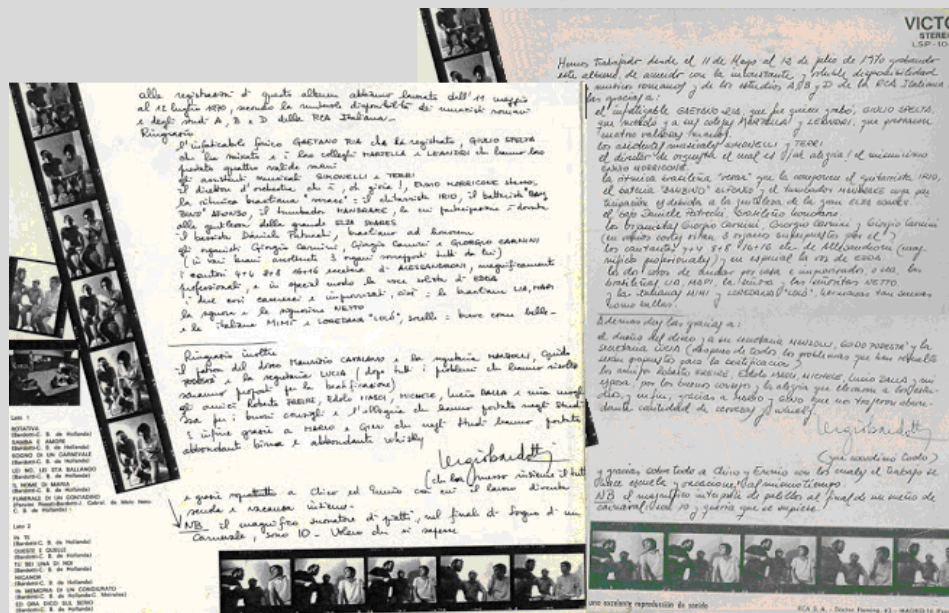 alle registrazioni di questo album abbiamo lavorato dall'11 maggio
al 12 luglio 1970, secondo la disponibilità dei musicisti romani
e degli studi A, B e D della RCA Italiana.
Ringrazio
l'infaticabile fonico GAETANO RIA che ha registrato, GIULIO SPELTA
che ha mixato e i loro colleghi MARTELLA e LEANDRI che hanno loro
prestato quattro valide mani
gli assistenti musicali SIMONELLI e TERRI
il direttore d'orchestra che è, oh gioia!, ENNIO MORRICONE stesso
la ritmica brasiliana "verace" = il chitarrista IRIO, il batterista
AFONSO, il tumbador MANDRAKE, la cui partecipazione è dovuta
alla gentilezza della grande ELZA SOARES
il bassista Daniele Patucchi, brasiliano ad honorem
gli organisti Giorgio Carnini, Giorgio Carnini e GIORGIO CARNINI
(in vari brani ascolterete 3 organi sovrapposti tutti da lui)
i cantori 4+4 8+8 16+16 eccetera di ALESSANDRONI, magnificamente
professionali, e in special modo la voce solista d'EDDA
i due cori casarecci e improvvisati, cioè = le brasiliane LIA, MAPI
la signora e le signorine NETTO
e le italiane MIMÌ e LOREDANA "LOLÒ", sorelle = brave come belle.
Ringrazio inoltre
il patron del disco Maurizio CATALANO e la segretaria MANZOLLI, Guido
PODESTÀ e la segretaria LUCIA (dopo tutti i problemi che hanno risolto
saranno proposti per la beatificazione)
gli amici Roberto FREIRE, Edolo MASCI, MICHELE, Lucio DALLA e mia moglie
per i buoni consigli e l'allegria che hanno portato negli studi
E infine grazie a MARIO e che negli studi hanno portato
abbondante birra e abbondante whisky
Sergio Bardotti
(che ha messo insieme il tutto)
e grazie soprattutto a Chico ed Ennio con cui il lavoro diventa
scuola e vacanza insieme.
NB. il magnifico suonatore di piatti, nel finale di Sogno di un
Carnevale, sono IO. Volevo che si sapesse
Lato 1
ROTATIVA
(Bardotti-C. B. de Hollanda)
SAMBA E AMORE
(Bardotti-C. B. de Hollanda)
SOGNO DI UN CARNEVALE
(Bardotti-C. B. de Hollanda)
LEI NO, LEI STA BALLANDO
(Bardotti-C. B. de Hollanda)
IL NOME DI MARIA
(Bardotti-C. B. de Hollanda)
FUNERALE DI UN CONTADINO
C. B. de Hollanda)
Lato 2
IN TE
(Bardotti-C. B. de Hollanda)
QUESTE E QUELLE
(Bardotti-C. B. de Hollanda)
TU SEI UNA DI NOI
(Bardotti-C. B. de Hollanda)
NICANOR
(Bardotti-C. B. de Hollanda)
IN MEMORIA DI UN CONGIURATO
ED ORA DICO SUL SERIO
(Bardotti-C. B. de Hollanda)
VICTO
STEREO
LSP-10
Hemos trabajado desde el 11 de Mayo al 12 de julio de 1970 grabando
este album, de acuerdo con la disponibilidad
musicos romanos y de los estudios A, B y D de la RCA Italiana
las gracias a:
el infatigable GAETANO RIA, que fue quien grabó, GIULIO SPELTA,
que mezcló y a sus colegas MARTELLA y LEANDRI, que prestaron
cuatro valiosas manos
los asistentes musicales SIMONELLI y TERRI
el director de orquesta el cual es ¡oh alegria! el mismisimo
ENNIO MORRICONE
la ritmica brasileña "veraz" que la componen el guitarrista IRIO,
el bateria y el tumbador MANDRAKE cuya par
ticipación es debida a la gentileza de la gran ELZA SOARES
el bajo Daniele Patucchi, brasileño honorario
los organistas Giorgio Carnini, Giorgio Carnini y Giorgio Carnini
los cantantes 4+4 8+8 16+16 etc. de Allessandroni
y en especial la voz de EDDA
los dos coros de andar por casa e improvisados, o sea, las
brasileñas LIA, MAPI, la señora y las señoritas NETTO
y las italianas MIMI y LOREDANA "LOLÒ", hermanas tan buenas
como bellas.
Además doy las gracias a:
el dueño del disco y a su secretaria MANZOLLI, GUIDO PODESTÀ y la
secretaria LUCIA (después de todos los problemas que han resuelto
serán propuestos para la beatificación)
los amigos Roberto FREIRE, Edolo MASCI, MICHELE, Lucio DALLA y mi
esposa, por los buenos consejos y la alegria que llevaron a los estu
dios, y en fin, gracias a MARIO y GINO que nos trajeron abun
dante cantidad de cerveza y whisky
Sergio Bardotti
(que coordinó todo)
y gracias sobre todo a Chico y Ennio con los cuales el trabajo se
hace escuela y vacaciones al mismo tiempo.
NB el magnifico intérprete de platillos al final de un sueño de
carnaval soy yo y queria que se supiese.
una excelente reproducción de sonido
RCA S.A.